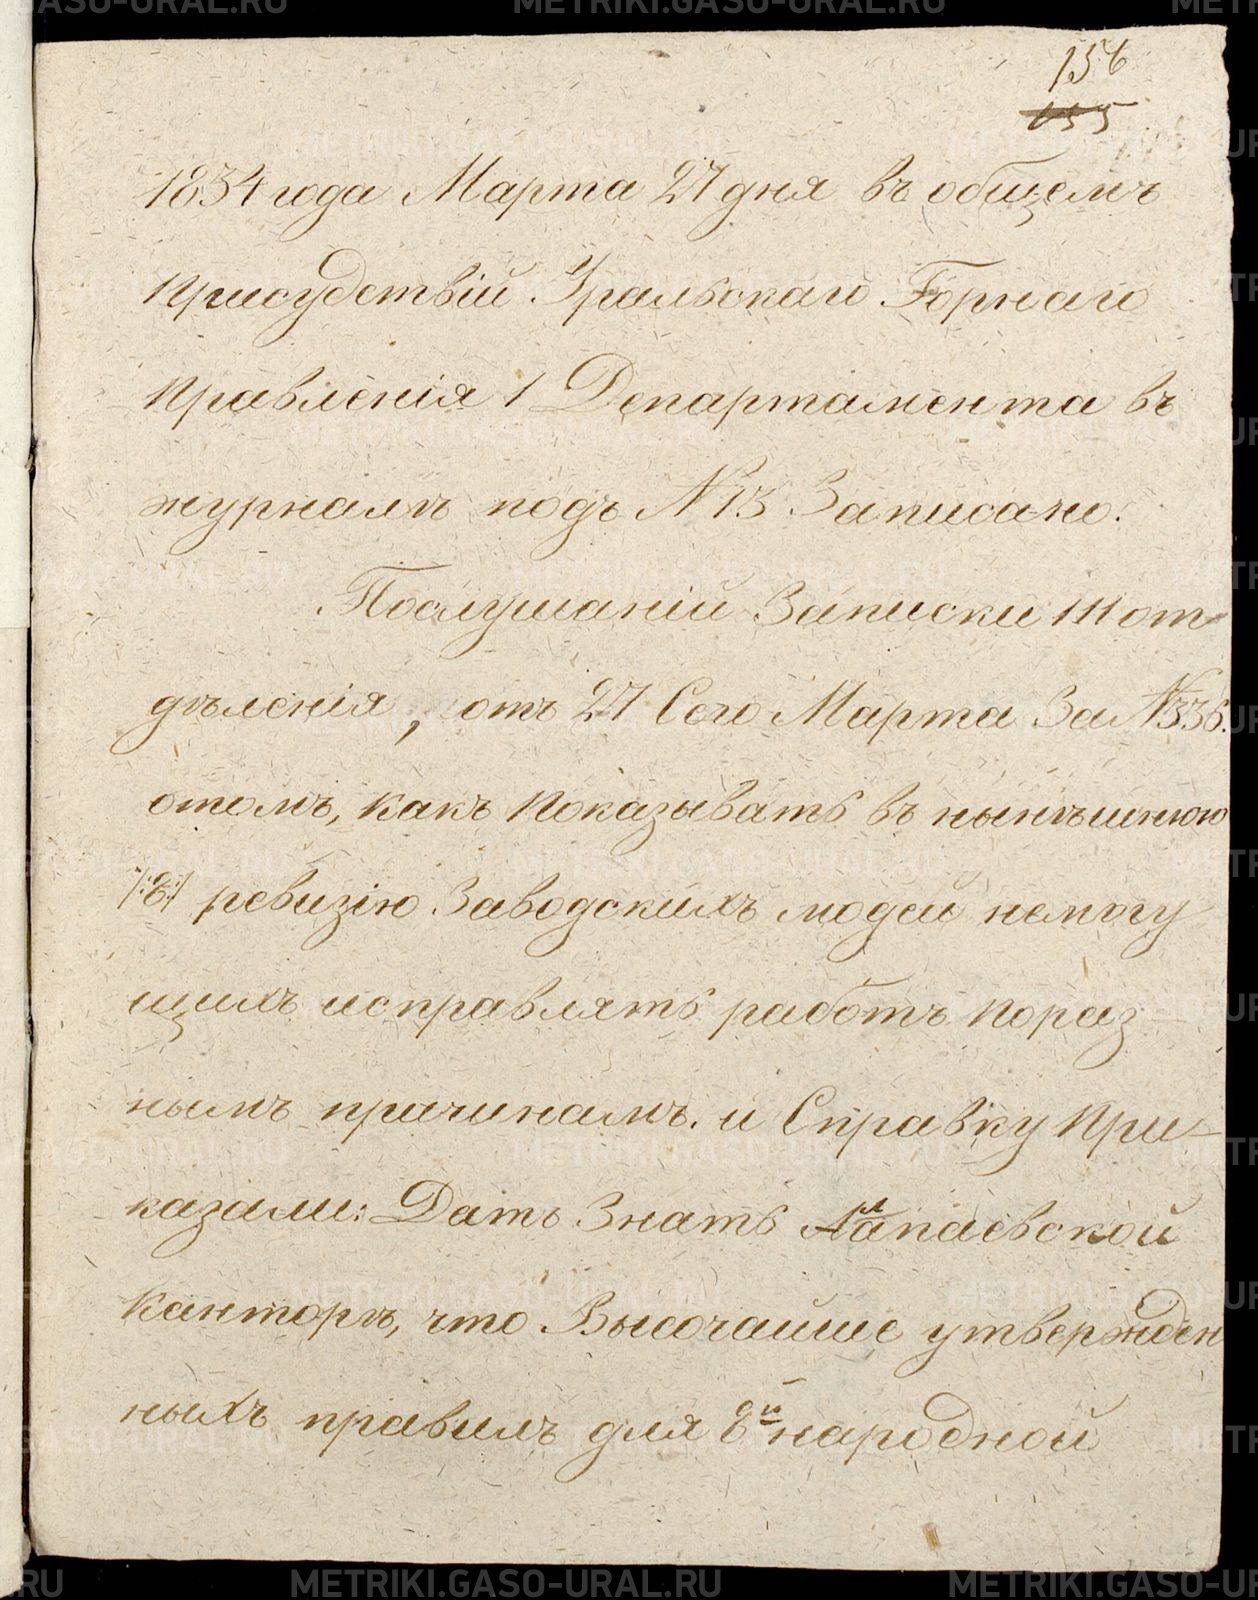 156
155
1834 года Марта 27 дня въ общемъ
Присудствіи Уральскаго Горнаго
Правленія 1 Департамента въ
журналѣ подъ № 13 Записано.
Послушаніи Записки III от
дѣленія, отъ 27 Сего Марта За № 336.
отомъ, какъ Показывать въ нынѣшнюю
/:8:/ ревизію Заводскихъ людей немогу
щихъ исправлять работъ Пораз
нымъ причинамъ. и Справку При-
казали: Дать Знать Алапаевской
Канторѣ, что Высочайше утвержден
ныхъ правилъ для 8й народной
METRIKI.GASO-URAL.RU